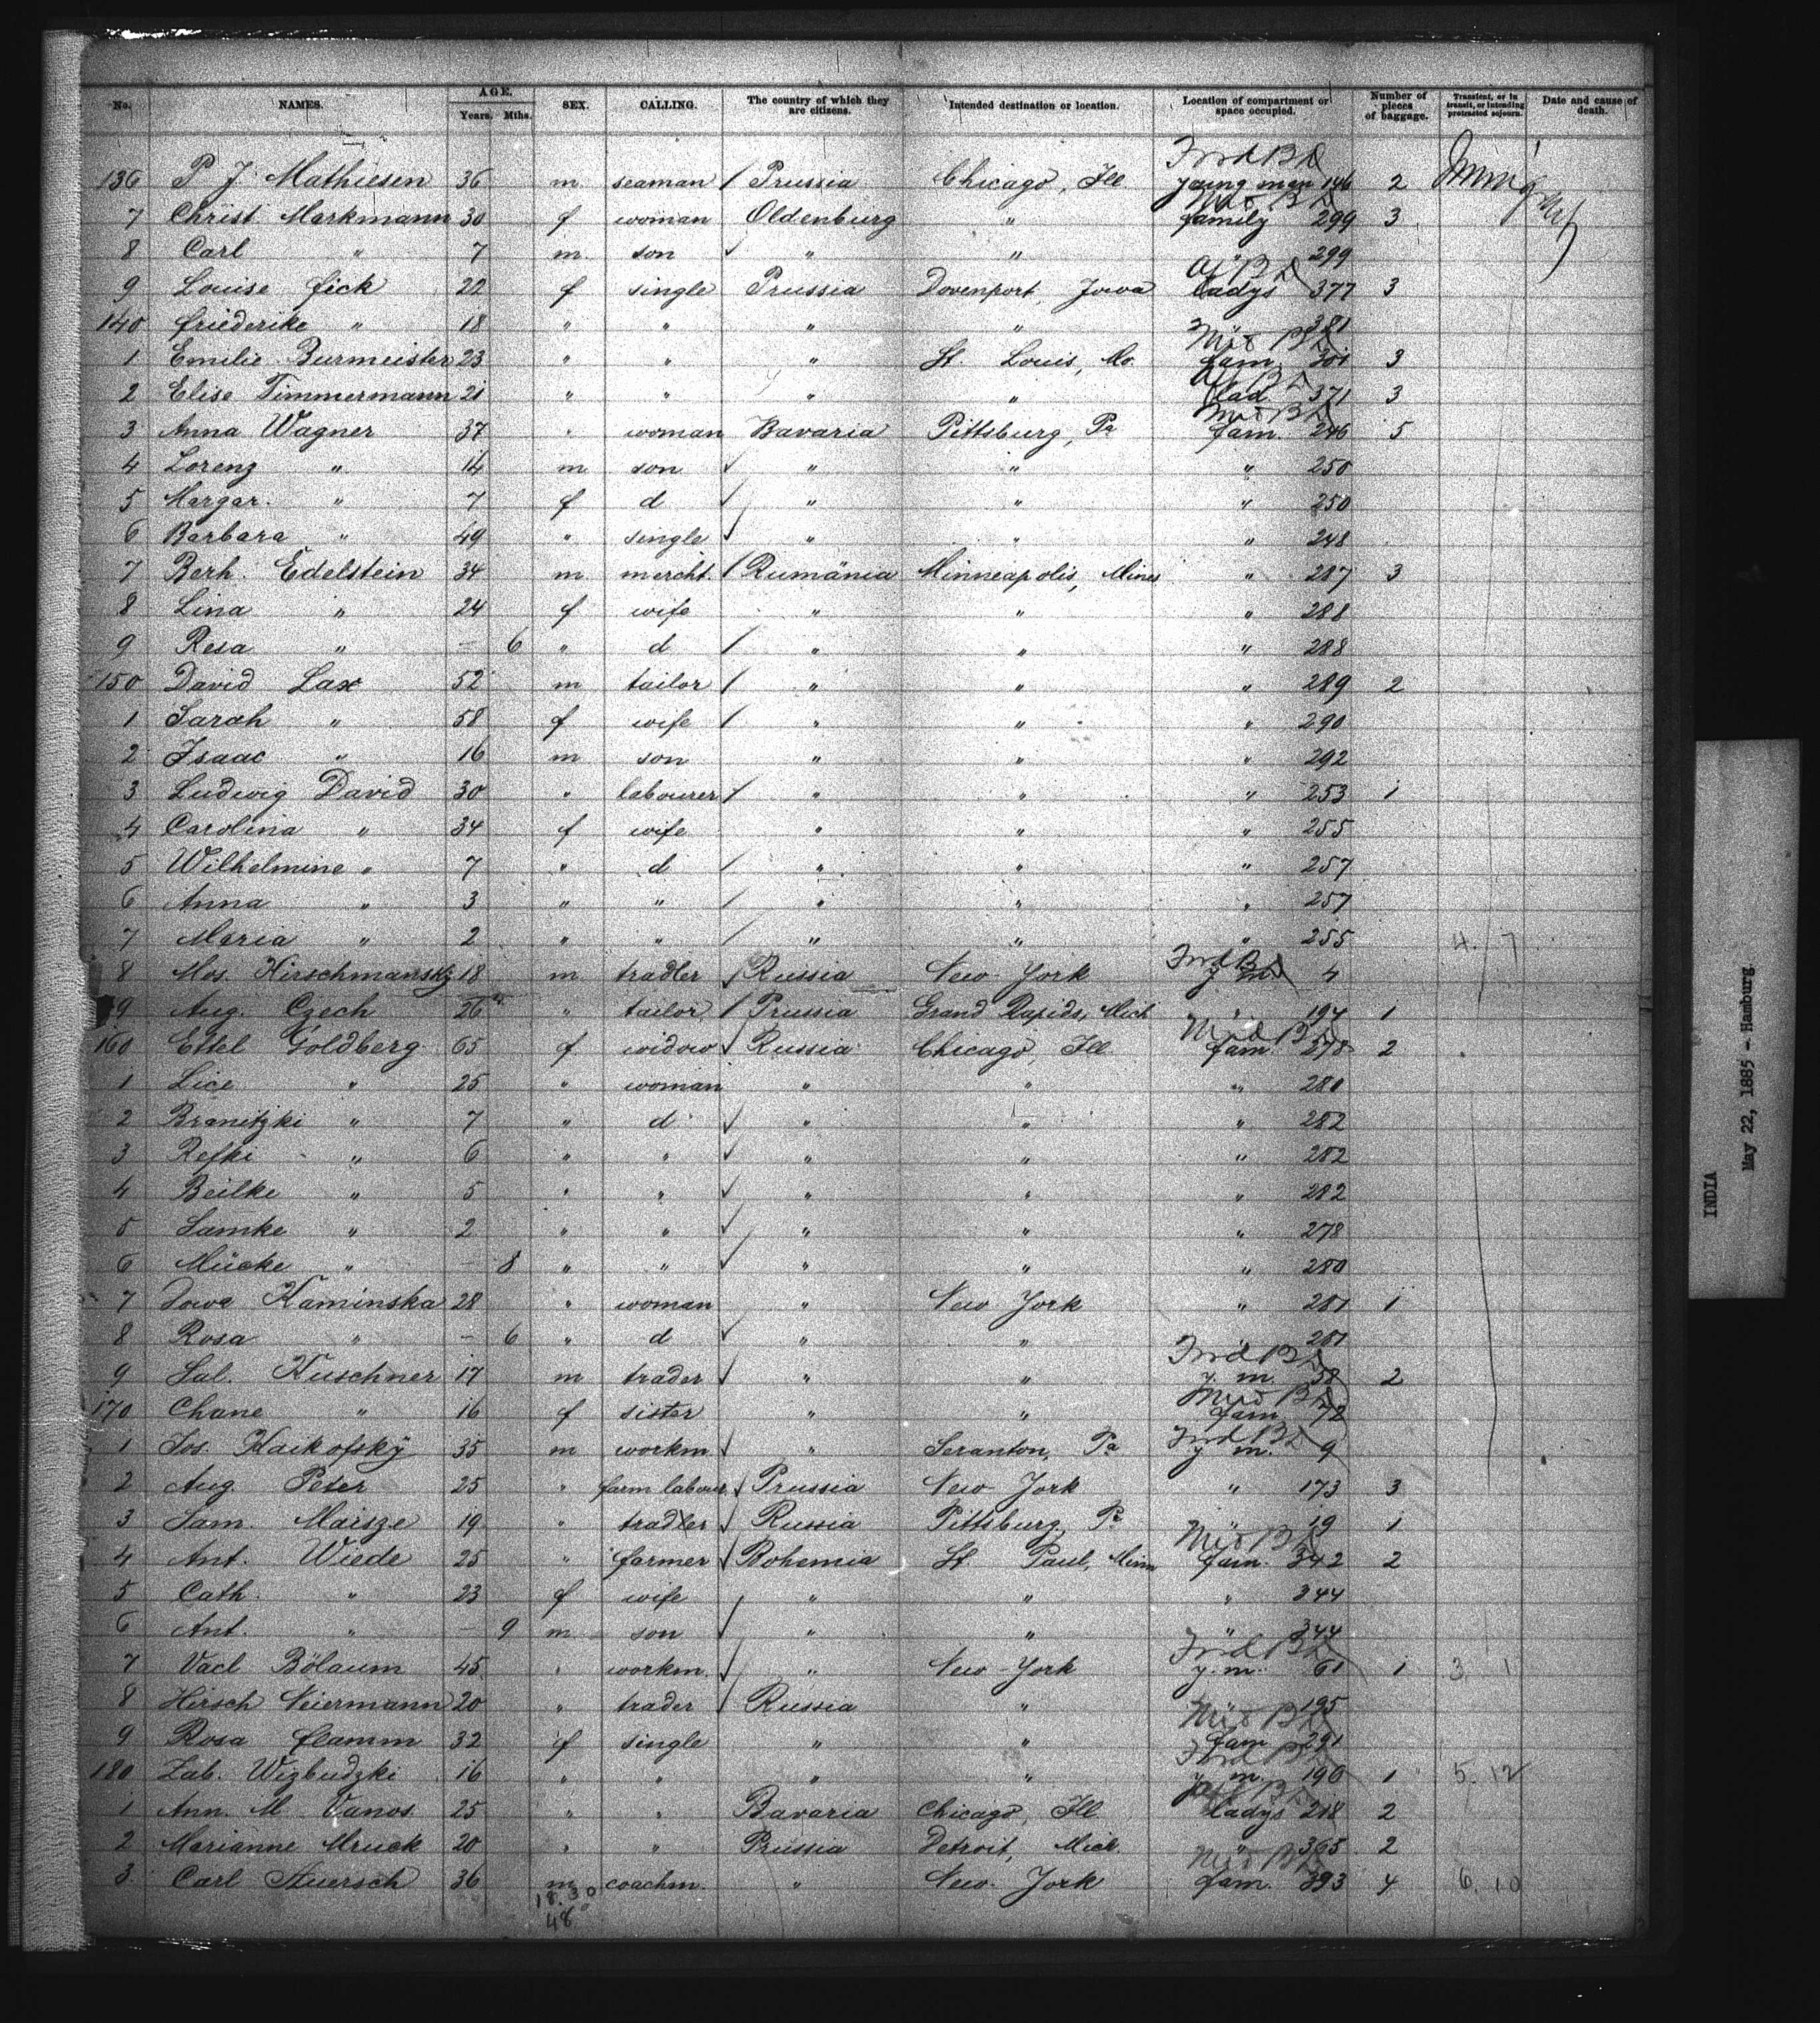 No. NAMES. AGE. Years. Mths. SEX. CALLING. The country of which they are citizens. Intended destination or location. Location of compartment or space occupied. Number of pieces of baggage. Transient, or in transit, or intending protracted sojourn. Date and cause of death.
136 P. J. Mathiesen 36 m seaman Prussia Chicago, Ill. young men 146 2
7 Christ Markmann 30 f woman Oldenburg " family 299 3
8 Carl " 7 m son " " 299
9 Louise Fick 22 f single Prussia Davenport, Jowa ladys 377 3
140 Friederike " 18 " " " " " 381
1 Emilie Burmeister 23 " " " St. Louis, Mo. fam. 301 3
2 Elise Timmermann 21 " " " " lad 371 3
3 Anna Wagner 37 " woman Bavaria Pittsburg, Pa fam. 246 5
4 Lorenz " 14 m son " " " 250
5 Margar. " 7 f d " " " 250
6 Barbara " 49 " single " " " 248
7 Berh. Edelstein 34 m mercht. Rumänia Minneapolis, Mines " 287 3
8 Lina " 24 f wife " " " 288
9 Resa " - 6 " d " " " 288
150 David Lax 52 m tailor " " " 289 2
1 Sarah " 58 f wife " " " 290
2 Isaac " 16 m son " " " 292
3 Ludwig David 30 " labourer " " " 253 1
4 Carolina " 34 f wife " " " 255
5 Wilhelmine " 7 " d " " " 257
6 Anna " 3 " " " " " 257
7 Maria " 2 " " " " " 255 4. 7
8 Mos. Hirschmansky 18 m tradler Russia New-York y m 4
9 Aug. Czech 26 " tailor Prussia Grand Rapids, Mich " 194 1
160 Ettel Goldberg 65 f widow Russia Chicago, Ill. fam. 278 2
1 Lice " 25 " woman " " " 280
2 Branitzki " 7 " d " " " 282
3 Refki " 6 " " " " " 282
4 Beilke " 5 " " " " " 282
5 Samke " 2 " " " " " 278
6 Mücke " - 8 " " " " " 280
7 Dowe Kaminska 28 " woman " New York " 281 1
8 Rosa " - 6 " d " " " 281
9 Sal. Kuschner 17 m trader " " y. m. 58 2
170 Chane " 16 f sister " " fam 72
1 Jos. Kaikofsky 35 m workm. " Scranton, Pa y m. 9
2 Aug. Peter 25 " farm labour. Prussia New-York " 173 3
3 Sam. Maisze 19 " tradler Russia Pittsburg, Pa " 19 1
4 Ant. Wiede 25 " farmer Bohemia St Paul, Minn fam. 342 2
5 Cath. " 23 f wife " " " 344
6 Ant. " - 9 m son " " " 344
7 Vacl Bölaum 45 " workm. " New-York y. m. 61 1 3 1
8 Hirsch Neiermann 20 " trader Russia " " 195
9 Rosa Flamm 32 f single " " fam 291
180 Zab. Wizbudzki 16 " " " " y. m. 190 1 5. 12
1 Ann. M. Vanos 25 " " Bavaria Chicago, Ill ladys 218 2
2 Marianne Mruck 20 " " Prussia Detroit, Mich. " 365 2
3 Carl Auersch 36 m coachm. " New York fam. 393 4 6. 10
18. 30
48
INDIA
May 22, 1885 - Hamburg